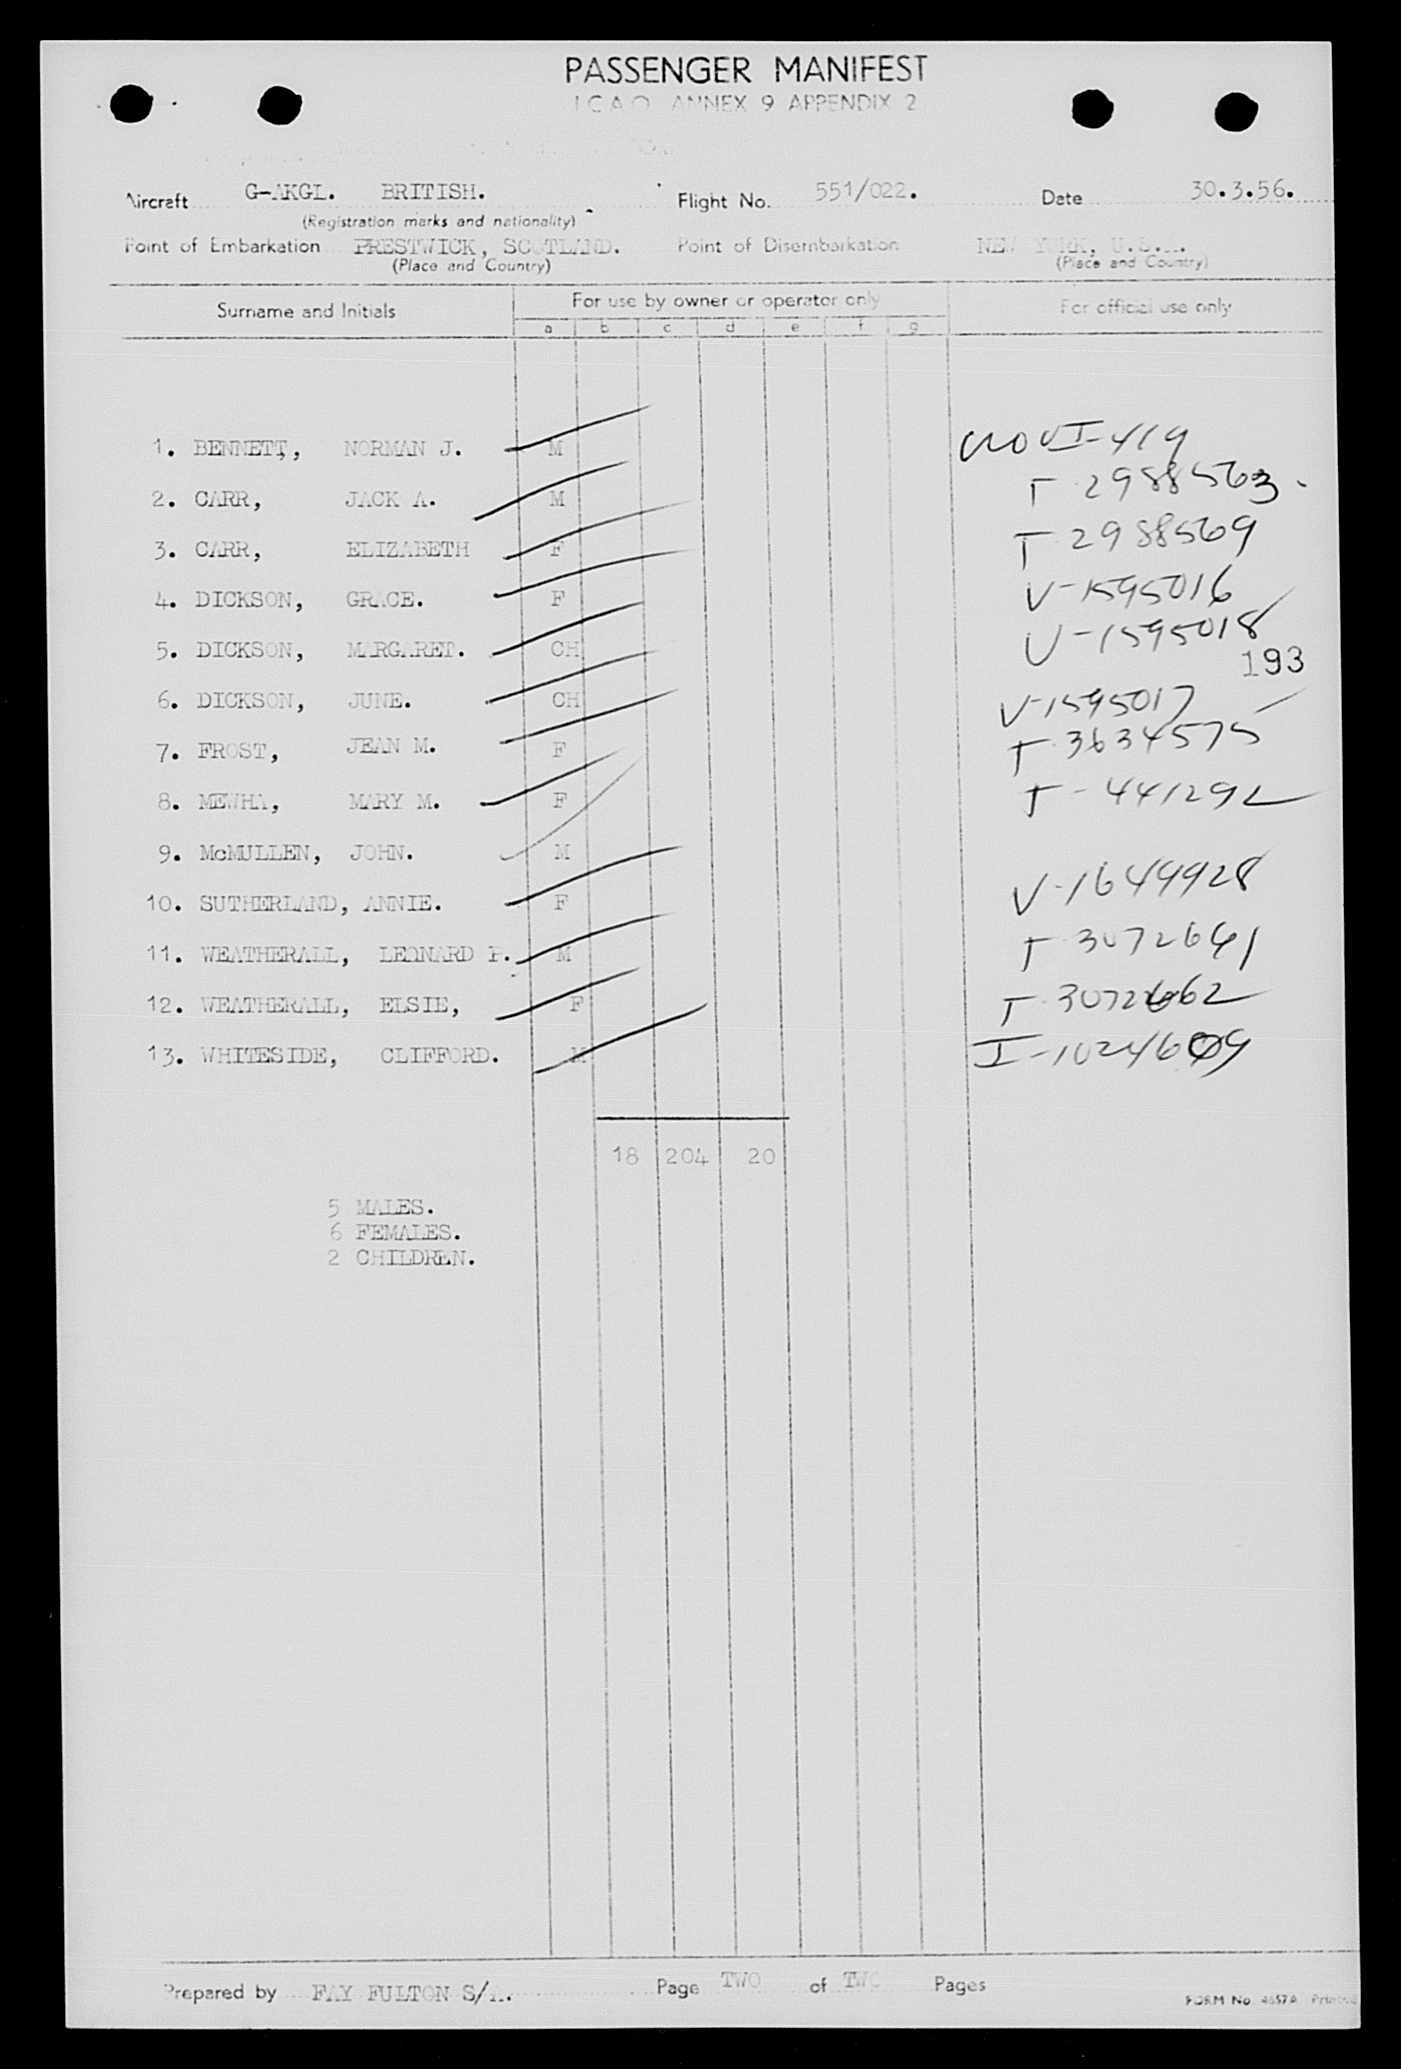 PASSENGER MANIFEST
I C A O ANNEX 9 APPENDIX 2
Aircraft G-AKGL. BRITISH. Flight No. 551/022. Date 30.3.56.
(Registration marks and nationality)
Point of Embarkation PRESTWICK, SCOTLAND. Point of Disembarkation NEW YORK, U.S.A.
(Place and Country) (Place and Country)
Surname and Initials For use by owner or operator only For official use only
a b c d e f g
1. BENNETT, NORMAN J. M I-419
2. CARR, JACK A. M T-2988563
3. CARR, ELIZABETH F T-2988569
4. DICKSON, GRACE. F V-1595016
5. DICKSON, MARGARET. CH V-1595018
193
6. DICKSON, JUNE. CH V-1595017
7. FROST, JEAN M. F T-3634575
8. MEWHA, MARY M. F T-441292
9. McMULLEN, JOHN. M
10. SUTHERLAND, ANNIE. F V-1649928
11. WEATHERALL, LEONARD P. M T-3072661
12. WEATHERALL, ELSIE, F T-3072662
13. WHITESIDE, CLIFFORD. M I-1024609
18 204 20
5 MALES.
6 FEMALES.
2 CHILDREN.
Prepared by FAY FULTON S/A. Page TWO of TWO Pages
FORM No. 4657A Printed